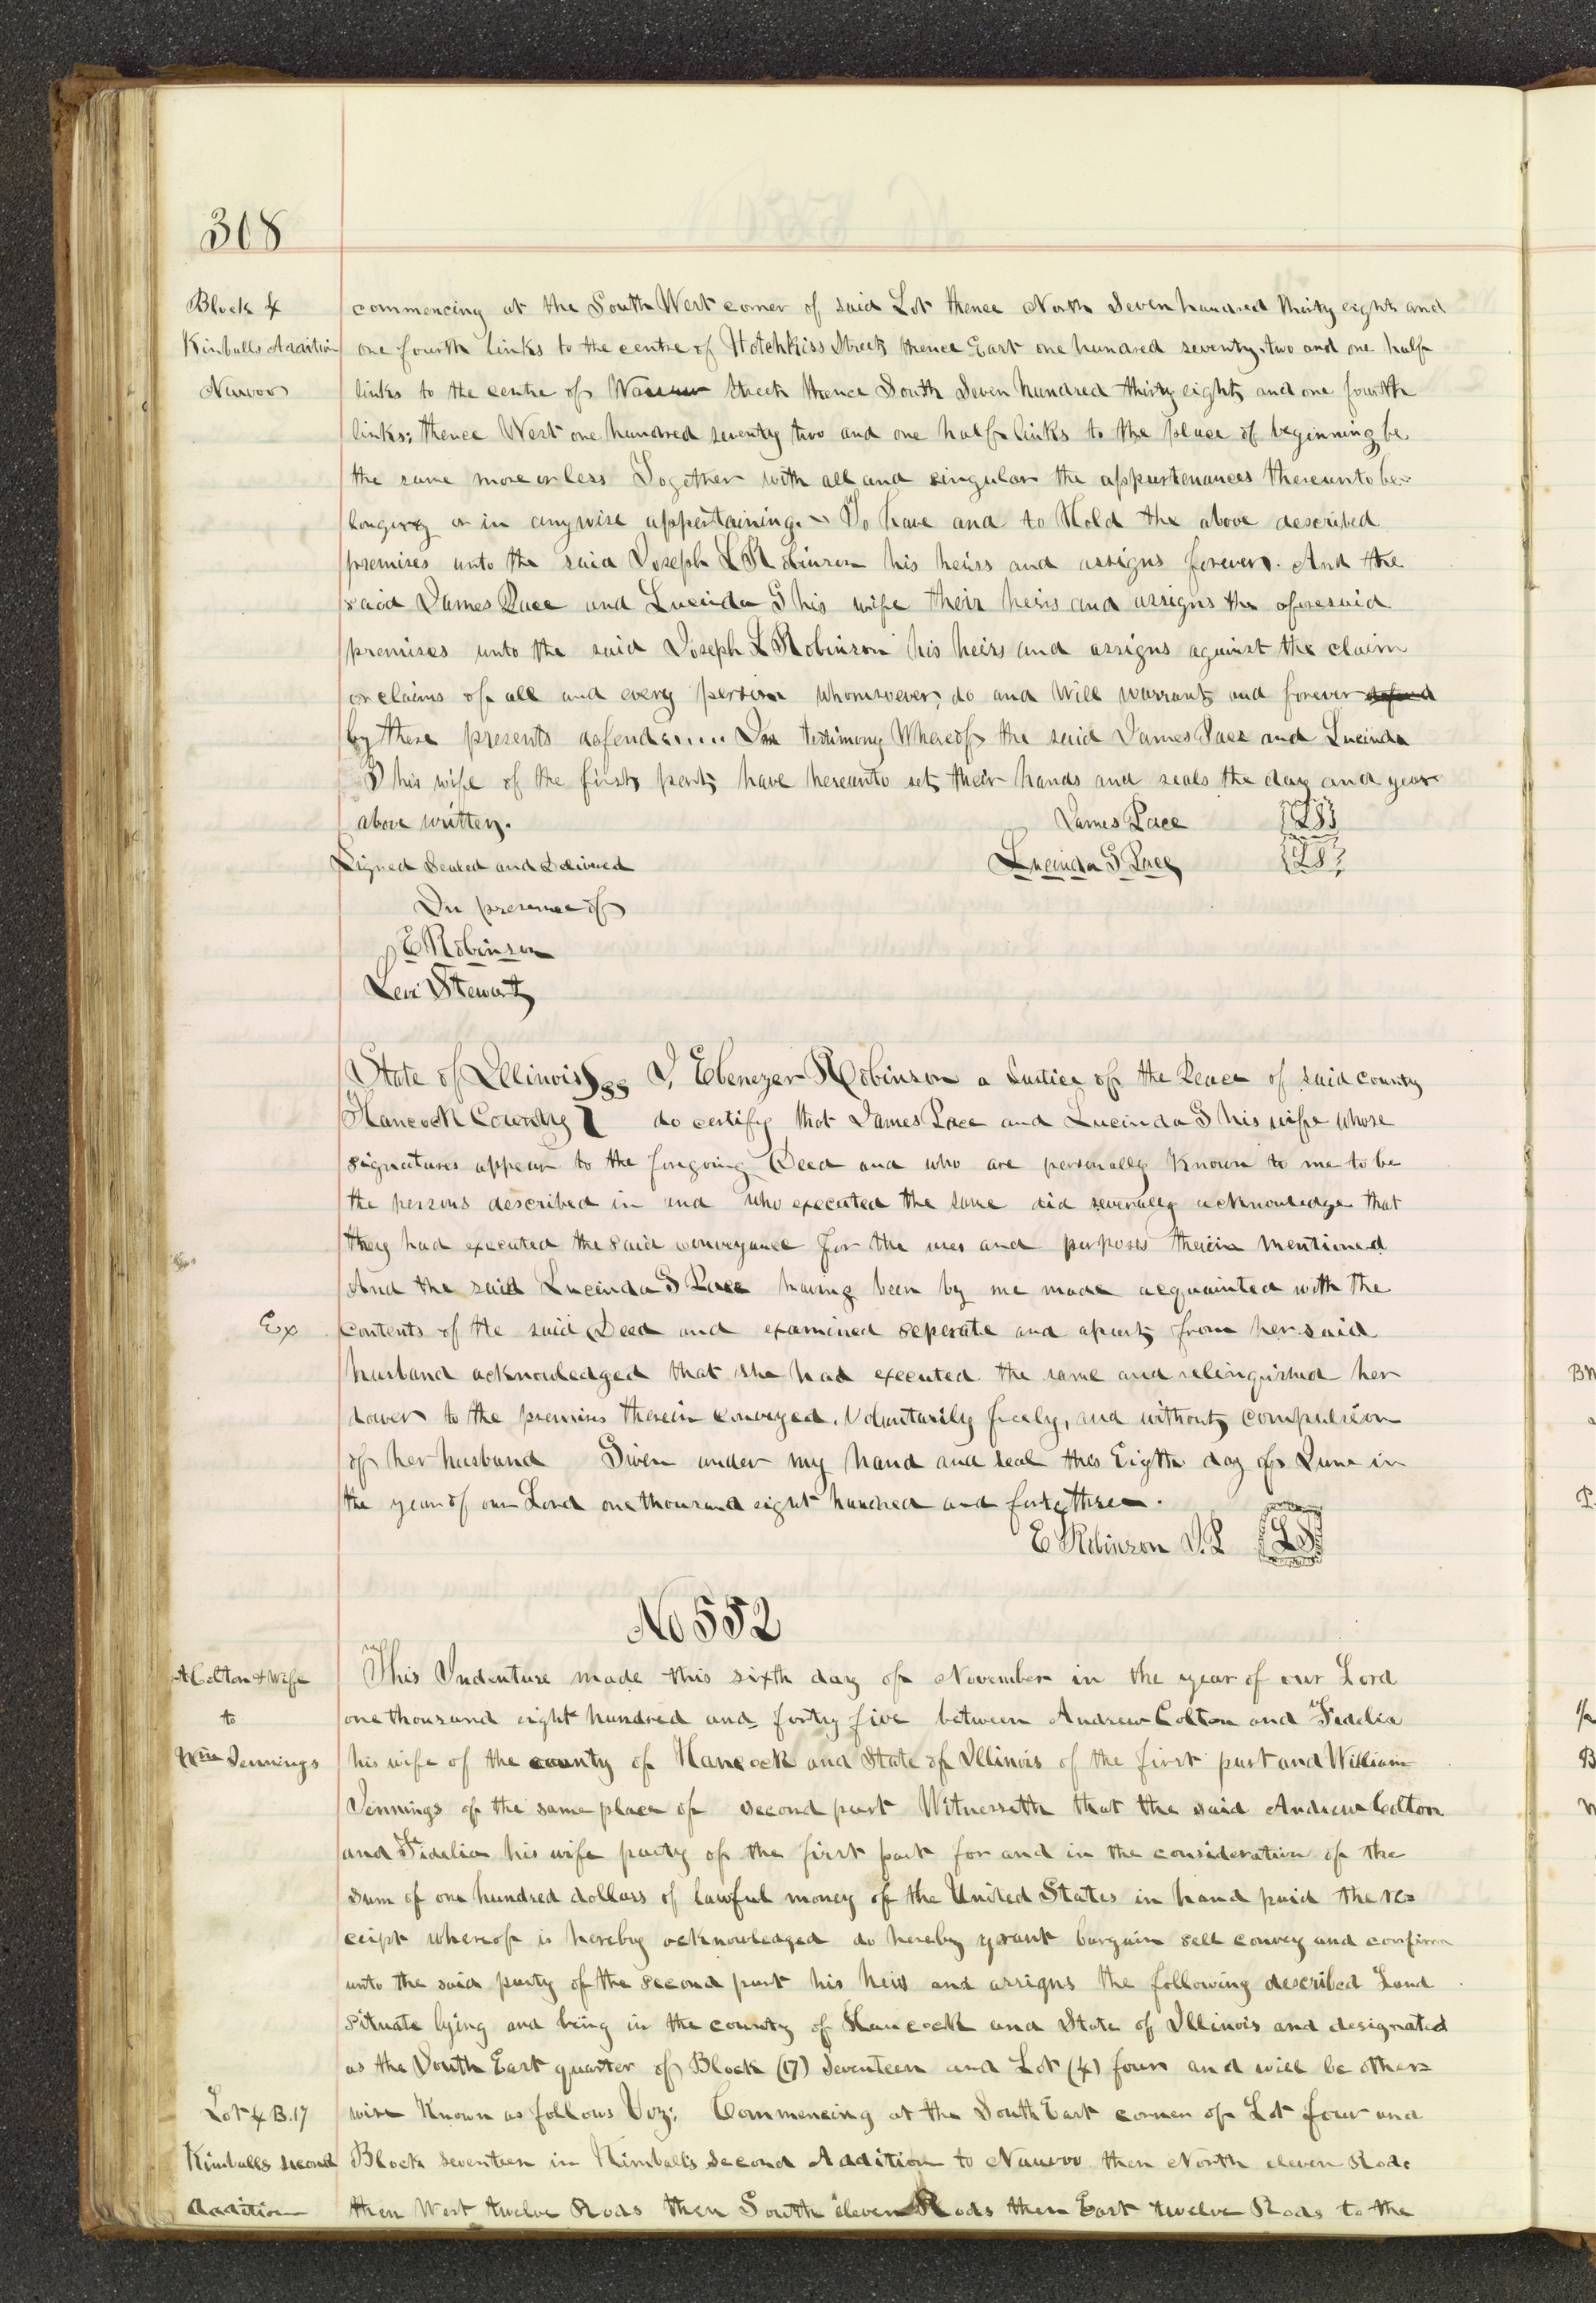 308
Block 4
Kimballs Addition
Nauvoo
commencing at the South West corner of said Lot thence North Seven hundred thirty eight and
one fourth links to the centre of Hotchkiss Street thence East one hundred seventy two and one half
links to the centre of Warsaw Street thence South Seven hundred thirty eight and one fourth
links; thence West one hundred seventy two and one half links to the place of beginning be
the same more or less Together with all and singular the appurtenances thereunto be-
longing or in anywise appertaining. To have and to Hold the above described
premises unto the said Joseph L Robinson his heirs and assigns forever. And the
said James Pace and Lucinda G his wife their heirs and assigns the aforesaid
premises unto the said Joseph L Robinson his heirs and assigns against the claim
or claims of all and every person whomsoever, do and Will warrant and forever defend
by these presents defend..... In testimony Whereof the said James Pace and Lucinda
G his wife of the first part have hereunto set their hands and seals the day and year
above written. James Pace {LS}
Signed Sealed and Delivered Lucinda G Pace {LS}
In presence of
E Robinson
Levi Stewart
State of Illinois } ss I, Ebenezer Robinson a Justice of the Peace of said county
Hancock County } do certify that James Pace and Lucinda G his wife whose
signatures appear to the foregoing Deed and who are personally Known to me to be
the persons described in and who executed the same did severally acknowledge that
they had executed the said conveyance for the uses and purposes therein mentioned
And the said Lucinda G Pace having been by me made acquainted with the
Ex
contents of the said Deed and examined seperate and apart from her said
husband acknowledged that she had executed the same and relinquished her
dower to the premises therein conveyed. Voluntarily freely, and without compulsion
of her husband Given under my hand and seal this Eigth day of June in
the year of our Lord one thousand eight hundred and forty three.
E Robinson J.P. {LS}
No 552
A Colton & Wife
to
Wm Jennings
This Indenture made this sixth day of November in the year of our Lord
one thousand eight hundred and fortry five between Andrew Colton and Fidelia
his wife of the county of Hancock and State of Illinois of the first part and William
Jennings of the same place of second part Witnesseth that the said Andrew Colton
and Fidelia his wife party of the first part for and in the consideration of the
sum of one hundred dollars of lawful money of the United States in hand paid the re-
ceipt whereof is hereby acknowledged do hereby grant bargain sell convey and confirm
unto the said party of the second part his heirs and assigns the following described Land
situate lying and being in the county of Hancock and State of Illinois and designated
as the South East quarter of Block (17) Seventeen and Lot (4) four and will be other=
Lot 4 B. 17
Kimballs second
Addition
wise Known as follows Viz: Commencing at the South East corner of Lot four and
Block seventeen in Kimball's Second Addition to Nauvoo then North eleven Rods
then West twelve Rods then South eleven Rods then East twelve Rods to the